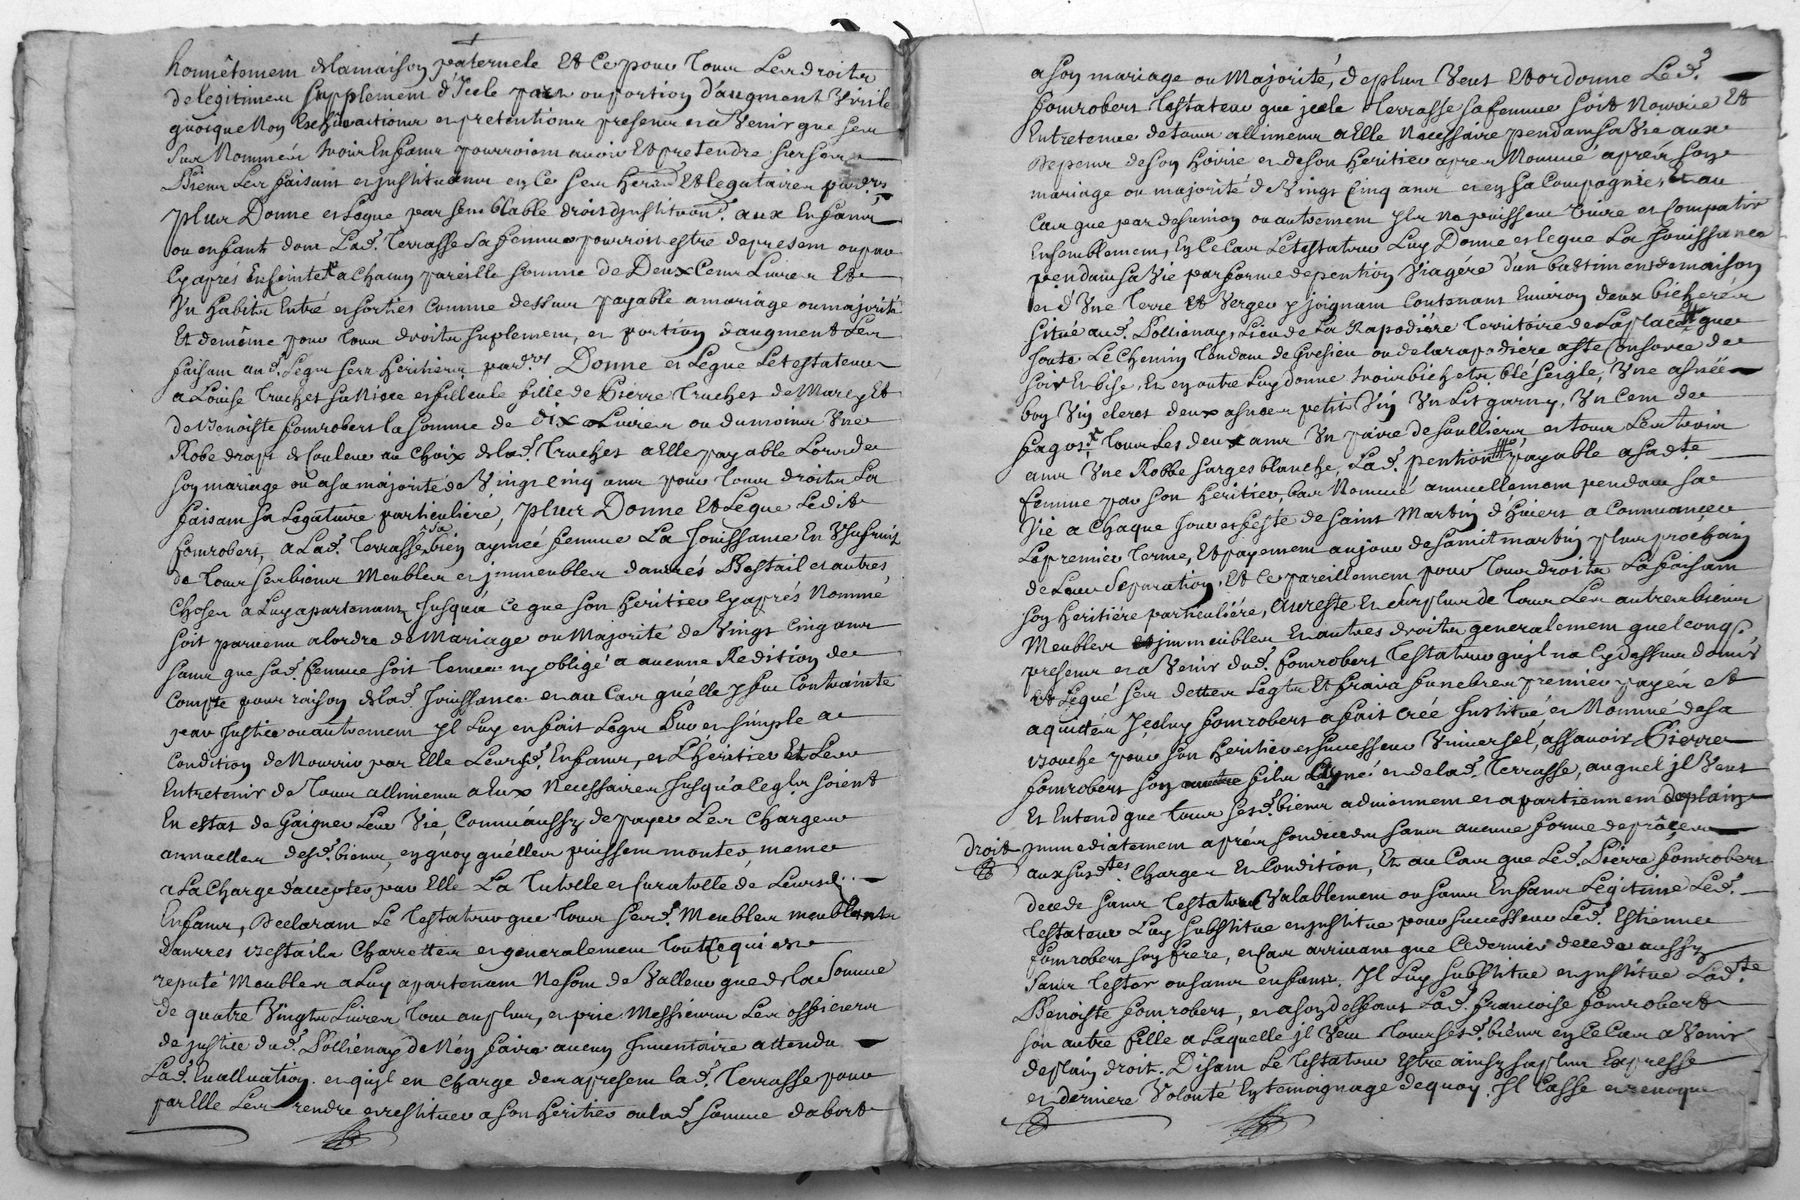 honnêtement de la maison paternele Et Ce pour tous Les droits
de legitimes supplement d'Icele part ou portion d'augment Virile
quoique Non Ex actions et pretentions presens et a Venir que ses
sus Nommés trois Enfans pourroient avoir Et pretendre sur ses
Biens Les faisant et instituant en Ce ses heres Et legataires par.ers
plus Donne et Legue par semblable droit d'jnstituon aux Enfans
ou enfant dont Lad. Terrasse sa femme pourroit estre de present ou par
Cy apres Enceinte a Chacun pareille somme de Deux Cens Livres Et
Un habits Entré et sorties Comme dessus payable a mariage ou majorité
Et de même pour tous droits suplement, et portion d'augment Les
faisant aud. Legs ses héritiers par.ers Donne et Legue Le testateur
a Louise Truchet sa Niece et filleule fille de Pierre Truchet de Marey Et
de Benoiste fomrobert la somme de dix Livres ou du moins Une
Robe drap de Couleur au Choix de lad. Truchet a Elle payable Lors de
son mariage ou a sa majorité de Vingt cinq ans pour tous droits La
faisant sa Legataire particuliere, plus Donne Et Legue Ledit
fomrobert, a Lad. Terrasse sa bien aymée femme La Jouissance En Usufruit
de tous ses biens Meubles et jmmeubles danrés Bestail et autres
Choses a Luy apartenant Jusqu'a ce que son heritier Cy aprés Nommé
soit parvenu a lordre de Mariage ou Majorité de Vingt Cinq ans
sans que sad. femme soit tenue ny obligé a aucune Redition de
Compte pour raison de lad. Jouissance et au Cas qu'elle y fut Contrainte
par Justice ou autrement Il Luy en fait Legs Pur et simple a
Condition de Nourrir par Elle Leursd. Enfans, et L'héritier Et Les
Entretenir de tous allimens a Eux Necessaires Jusqu'a Ce qu'ils soient
En estat de Gaigner Leur Vie, Comme áussy de payer Les Charges
annuelles desd. biens, en quoy qu'elles puissent monter, meme
a La Charge d'accepter par Elle La Tutelle et Curatelle de Leursd.
Enfans, Declarant Le Testateur que tous sesd. Meubles meublants
danrres bestails Charrettes et generalement tout Ce qui est
reputé Meubles a Luy apartenant Ne sont de Valleur que de la Somme
de quatre Vingts Livres tout au plus, et prie Messieurs Les officiers
de justice dud. Sollienay de N'en faire aucun Jnventaire attendu
Lad. Evalluation et qu'jl en Charge des a present lad. Terrasse pour
par Elle Les rendre et restituer a son héritier ou lad. somme d'abord
a son mariage ou Majorité, de plus Veut Et ordonne Led.
fomrobert Testateur que jcele Terrasse sa femme soit Nourrie Et
Entretenue de tous allimens a Elle Necessaire pendant sa Vie aux
Depens de son hoirie et de son heritier apres Nommé aprés son
mariage ou majorité de Vingt Cinq ans et en sa Compagnie, Et au
Cas que par desunion ou autrement Jls Ne puissent Vivre et Compatir
Ensemblement, En Ce Cas Le testateur Luy Donne et legue La Jouissance
pendant sa Vie par forme de pention Viagére d'un bastiment de maison
et d'Une Terre Et Verger y joignant Contenant Environ deux bicherées
situé aud. Sollienay, Lieu de La Rapodiére Territoire de Laplace que
Joute Le Chemin tendant de Gresieu ou de la rapodiere a Ste Consorce de
soir Et bise, Et en outre Luy donne trois bichets blé seigle, Une asnéé
bon Vin cleret deux asnees petit Vin Un Lit garny, Un Cent de
fagost, tous Les deux ans Un paire de soulliers et tous Les trois
ans Une Robbe sarges blanche, Lad. pention payable a sa dte
femme par son héritier, bas Nommé annuellement pendant sa
Vie a Chaque Jour et feste de saint Martin d'hivers a Commancer
Le premier terme, Et payement au jour de saint martin plus prochain
de Leur Separation, Et Ce pareillement pour tous droits La faisant
son héritiére particuliére, Au reste Et surplus de tous Les autres biens
Meubles jmmeubles Et autres droits generalement quelconqs.
presens et a Venir dud. fomrobert Testateur qu'jl na Cy dessus donnés
et Legué ses dettes Legts Et frais funebres premier payés et
aquittés Jceluy fomrobert a fait Créé Jnstitué et Nommé de sa
bouche pour son héritier et successeur Universel, assavoir Pierre
fomrobert son fils Ayné et de lad. Terrasse, auquel jl Veut
Et Entend que tous sesd. biens adviennent et apartiennent de plain
droit jmmediatement aprés son deces sans aucune forme de procés
aux susdites Charges Et Condition, Et au Cas que Led. Pierre fomrobert
decede sans Tester Valablement ou sans Enfans Legitime Led.
Testateur Luy substitue et jnstitue pour successeur Led. Estienne
fomrobert son frere, et Cas arrivant que Ce dernier decede aussy
sans tester ou sans enfans Il Luy substitue et jnstitue Ladte
Benoiste fomrobert, et a son deffaut Lad. francoise fomrobert
son autre fille a Laquelle jl Veut tous sesd. biens en Ce Cas a Venir
de plain droit. Disant Le Testateur Estre ainsy sa plus Expresse
et derniere Volonté En temognage de quoy. Il Casse et revoque